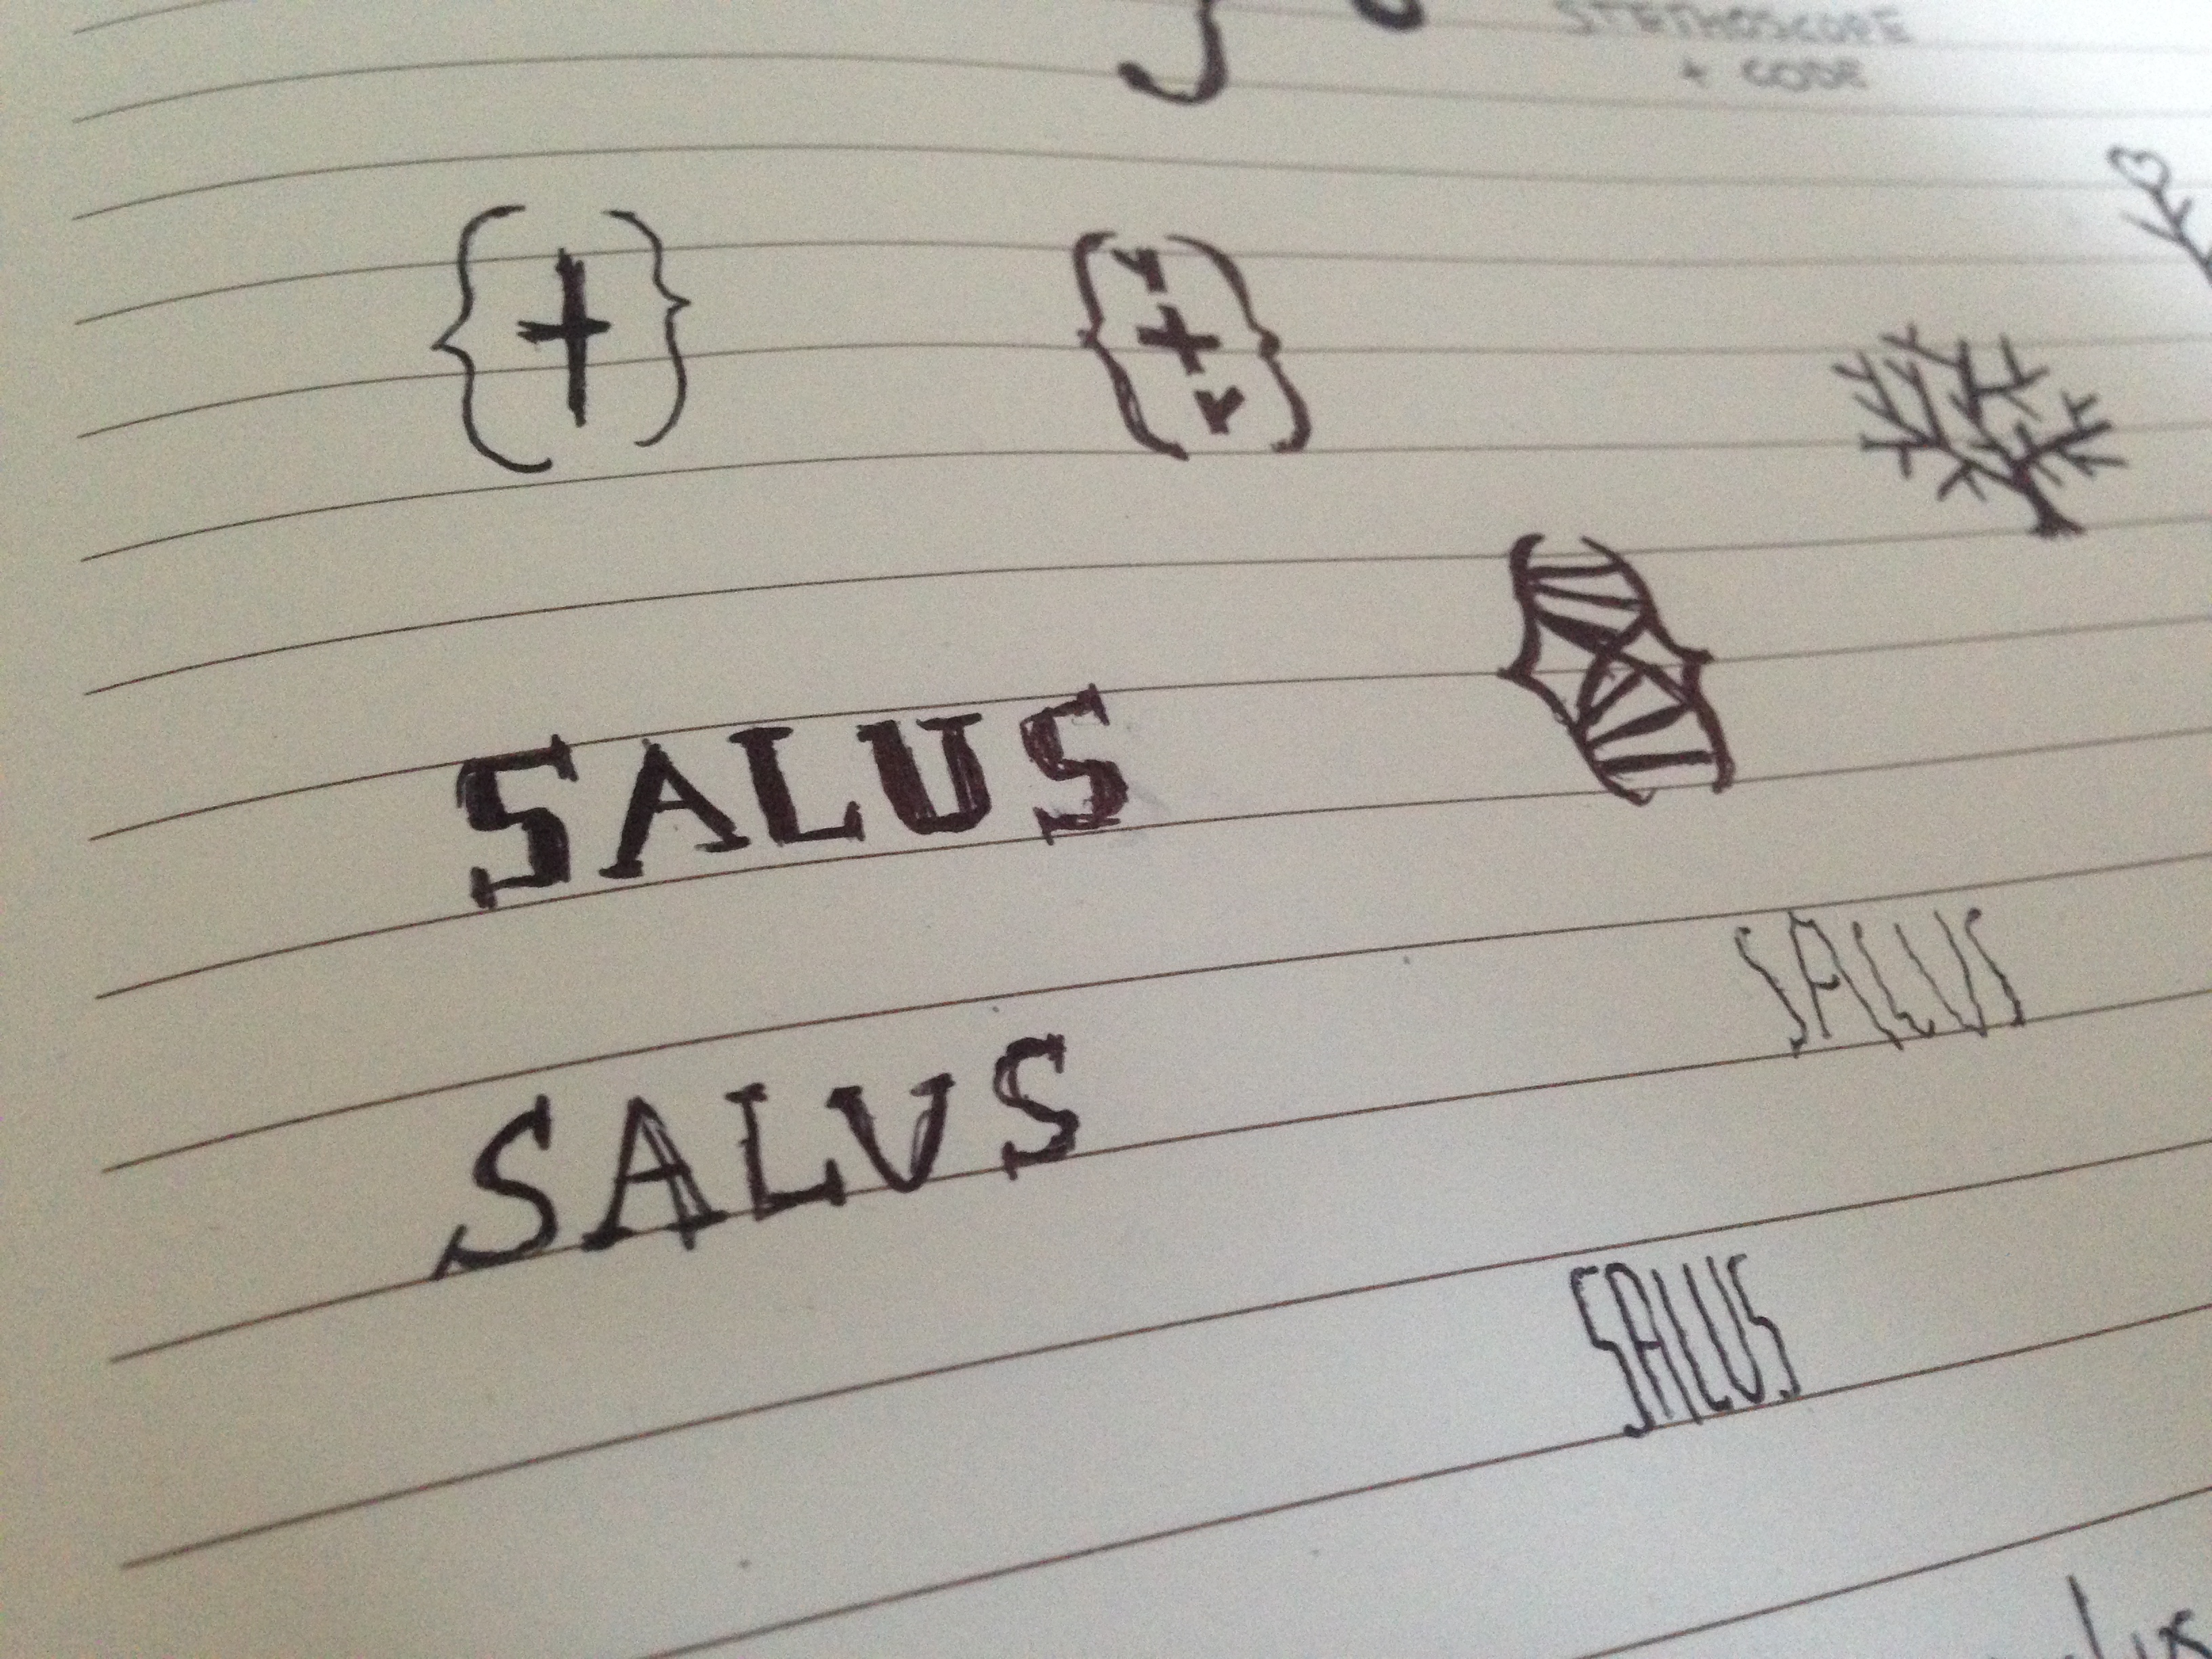 STETHOSCOPE
+ CODE
{+}
SALUS
SALUS
SALVS
SALUS